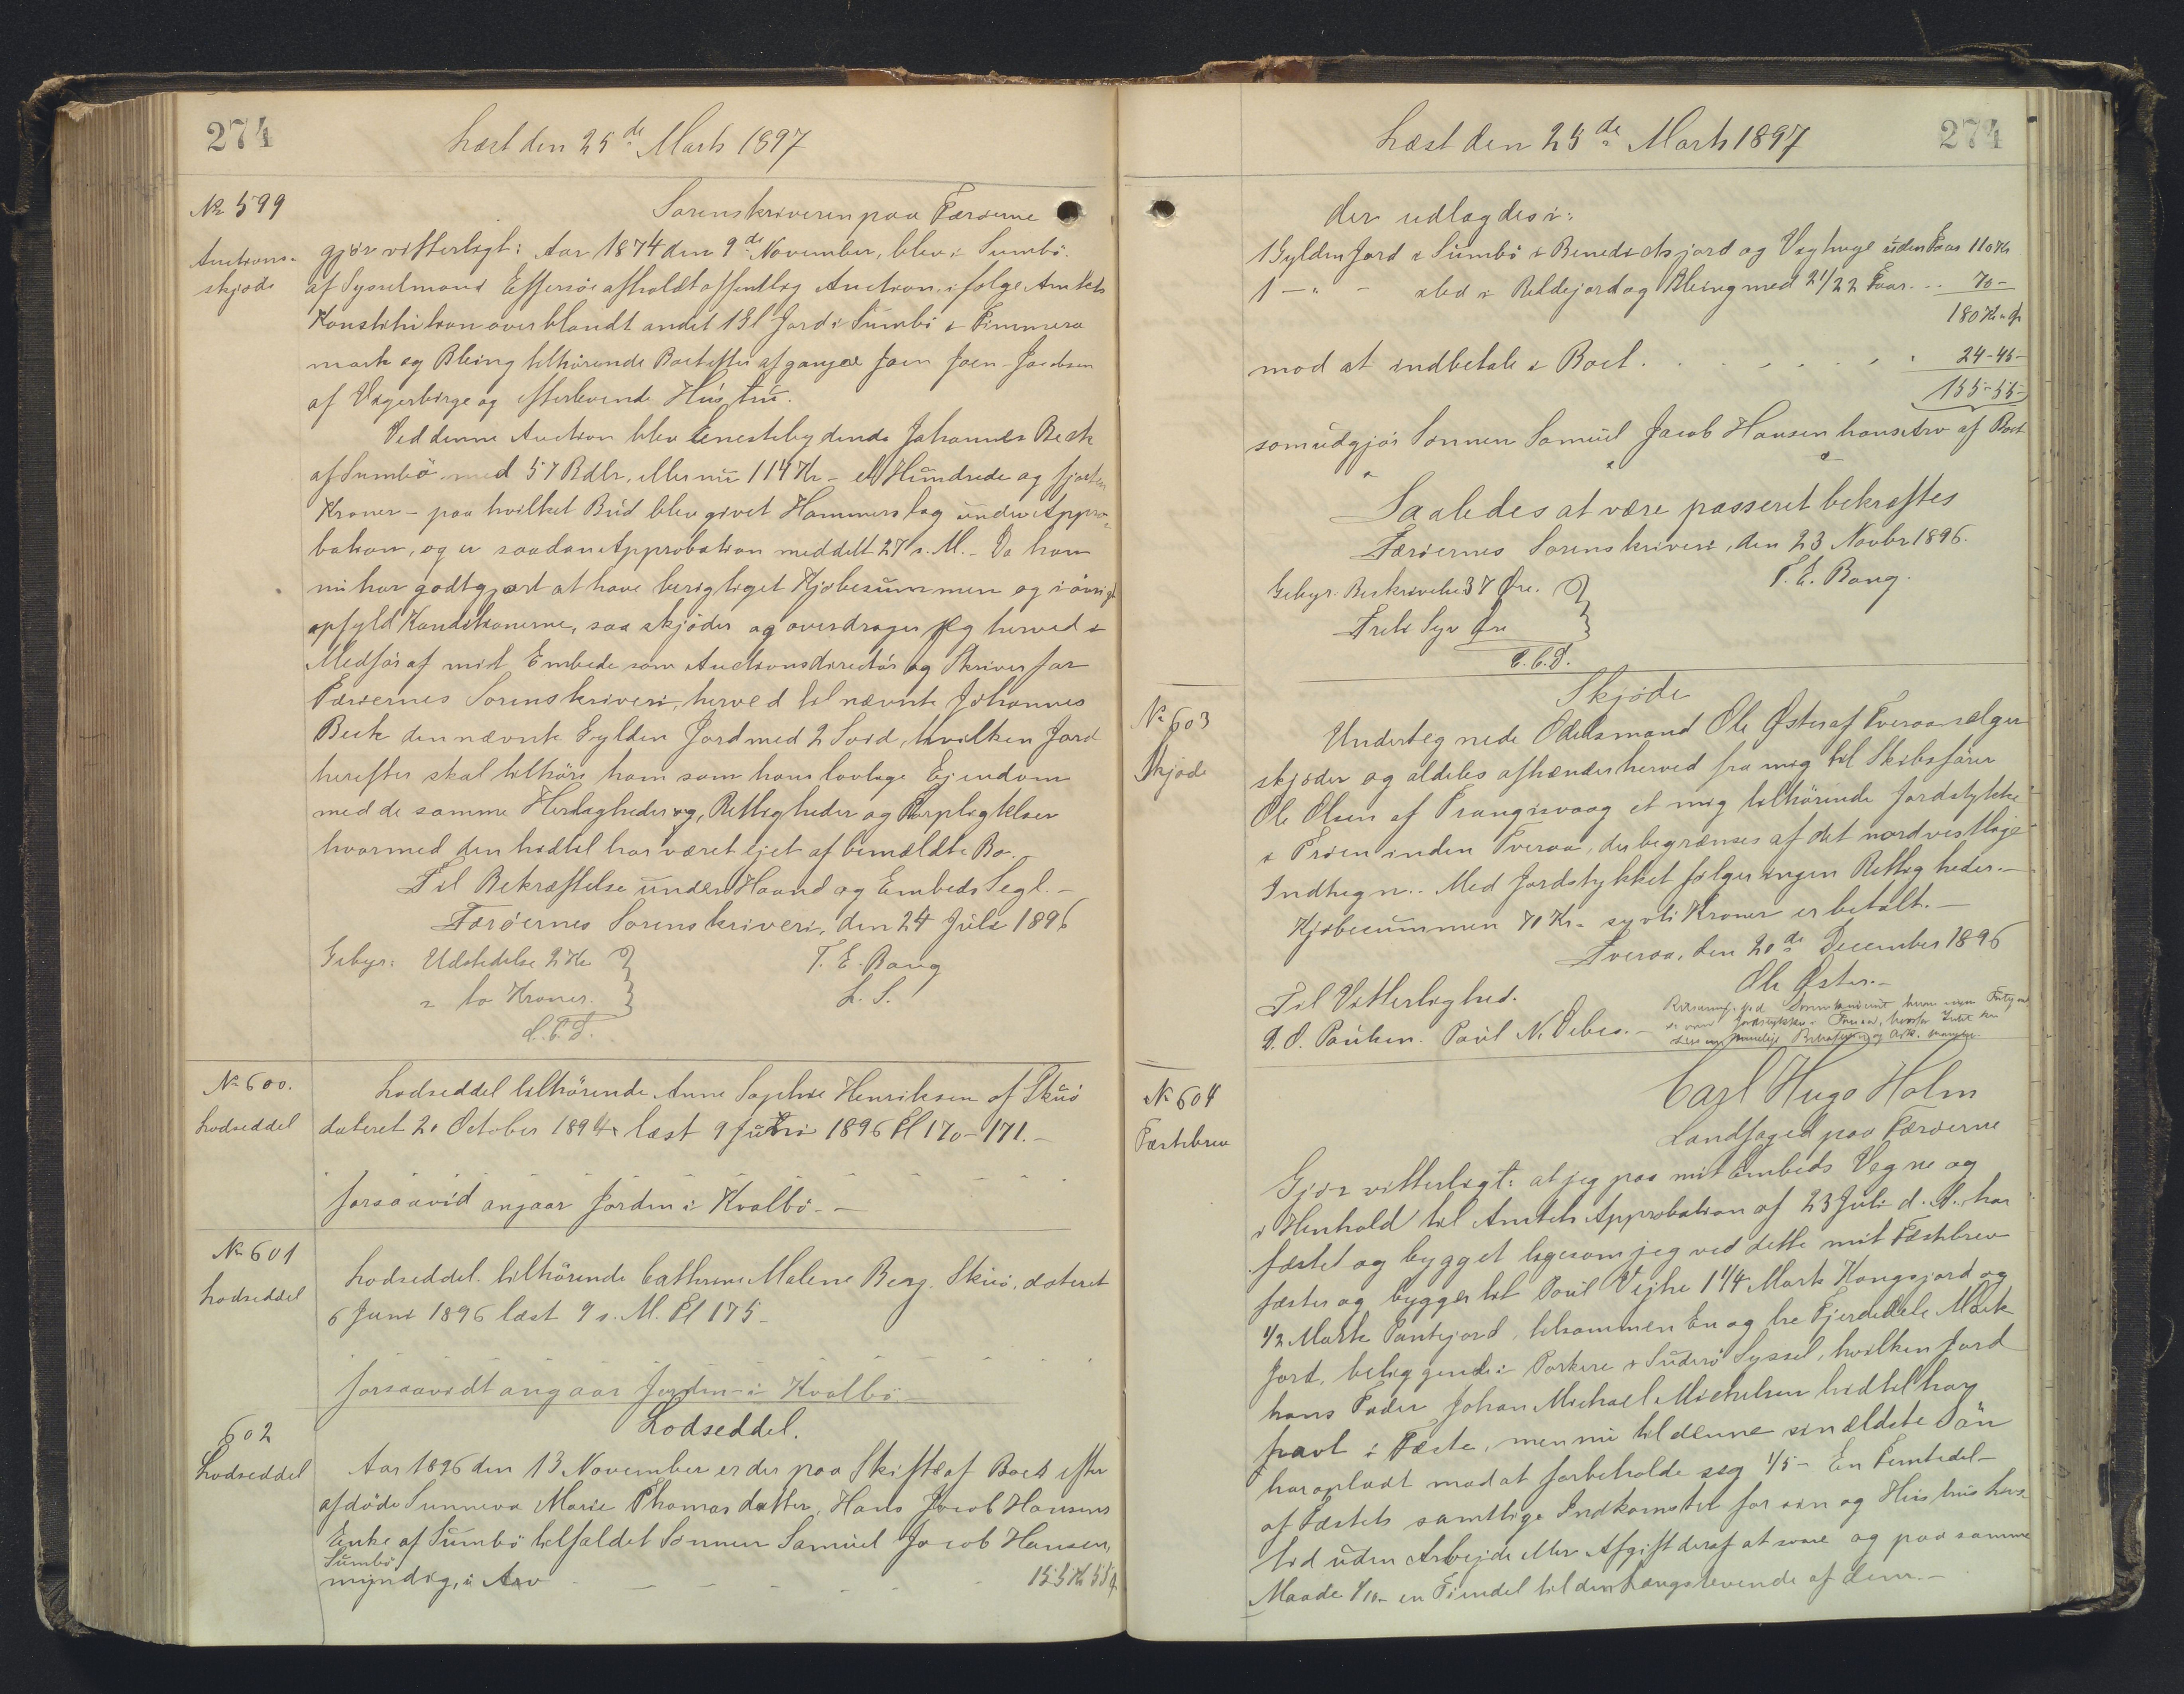 274
Læst den 25de Marts 1897
No 599
Auctions-
skjøde
Sorenskriveren paa Færøerne
gjør vitterligt: Aar 1874 den 9de November, blev i Sumbö
af Sysselmand Effersöe afholdt offentlig Auction ifølge Amtets
Konstitution over blandt andet 1 Gl Jord i Sumbö i Timmera
mark og Bleing tilhörende Boet efter afgangne Joen Joen Jacobsen
af Vagerbirge og efterlevende Hústrú.
Ved denne Auction blev Enestebydende Johannes Beck
af Sumbö med 57 Rdlr, eller nú 114 Kr - et Hundrede og fjorten
Kroner - paa hvilket Bud blev givet Hammerslag under Appro-
bation, og er saadan Approbation meddelt 27 s. M. - Da han
nú har godtgjort at have berigtiget Kjøbesummen og i øvrigt
opfyldt Konditionerne, saa skjøder og overdrager jeg herved i
Medför af mit Embede som Auctionsdirectör og Skriver for
Færøernes Sorenskriveri, herved til nævnte Johannes
Beck den nævnte Gylden Jord med 2 Soid, hvilken Jord
herefter skal tilhöre ham som hans lovlige Ejendom
med de samme Herligheder og, Rettigheder og Forpligtelser
hvormed den hidtil har været ejet af bemældte Bo.
Til Bekræftelse under Haand og Embeds Segl. -
Færøernes Sorenskriveri, den 24 Juli 1896
Gebyr: Udstedelse 2 Kr
T. E. Bang
= to Kroner.
L. S.
T. E. B.
No 600.
Lodseddel
Lodseddel tilhörende Anne Sophie Henriksen af Skúö
dateret 2. October 1894 læst 9 Juni 1896 Fl 170-171. -
forsaavid angaar Jorden i Kvalbö. -
No 601
Lodseddel
Lodseddel tilhörende Cathrine Malene Berg. Skúö, dateret
6 Juni 1896 læst 9 s. M. Fl 175 -
forsaavidt angaar Jorden i Kvalbö -
602
Lodseddel
Lodseddel.
Aar 1896 den 13 November er der paa Skifte af Boet efter
afdöde Sunneva Marie Thomasdatter, Hans Jacob Hansens
Enke af Sumbö tilfaldet Sönnen Samúel Jacob Hansen,
Sumbö
myndig, i Arv - - - - - 155 Kr 55 Ø.
Læst den 25de Marts 1897
274
der udlægdes i:
1 Gylden Jord i Sumbö i Benedictsjord og Væghuge uden Faar 110 Kr
1 - " - sted i Reldejord og Bleing med 21/22 Faar... 70 -
180 Kr " Ø
mod at indbetale i Boet . . . . . . 24-45-
155-55-
som udgjör Sönnen Samúel Jacob Hansen hans Arv af Boet
Saaledes at være passeret bekræftes
Færøernes Sorenskriveri, den 23 Novbr 1896.
T. E. Bang.
Gebyr. Beskrivelse 37 Øre.
Treti Syv Øre
T. E. B.
No 603
Skjøde
Skjøde
Undertegnede Odelsmand Ole Øster af Tveraa sælger
skjøder og aldeles afhænder herved fra mig til Skibsfører
Ole Olsen af Trangisvaag et mig tilhörende Jordstykke
i Trøen inden Tveraa, der begrænses af det nordvestlige
Indhegn.. Med Jordstykket følger ingen Rettigheder. -
Kjøbesummen 70 Kr. syvti Kroner er betalt. -
Tveraa, den 20de December 1896
Ole Øster. -
Til Vitterlighed.
D. P. Poulsen. Poul N. Debes. -
No 604
Fæstebrev
Carl Hugo Holm
Landfoged paa Færøerne
Gjör vitterligt: at jeg paa mit Embeds Vegne og
i Henhold til Amtets Approbation af 23 Juli d. A. har
fæstet og bygget ligesom jeg ved dette mit Fæstebrev
fæster og bygger til Poul Vejhe 1 1/4 Mark Kongsjord og
1/2 Mark Pantejord, tilsammen En og tre Fjerdedele Mark
Jord, beliggende i Porkere i Suderö Syssel, hvilken Jord
hans Fader Johan Michael Michelsen hidtil har
havt i Fæste, men nú til denne sin ældste Sön
har opladt mod at forbeholde sig 1/5 - En Femtedel -
af Fæstets samtlige Indkomster for sin og Hústrús Levs-
tid uden Arbejde eller Afgift deraf at svare og paa samme
Maade 1/10 - en Tiendel til den Længstlevende af dem. -